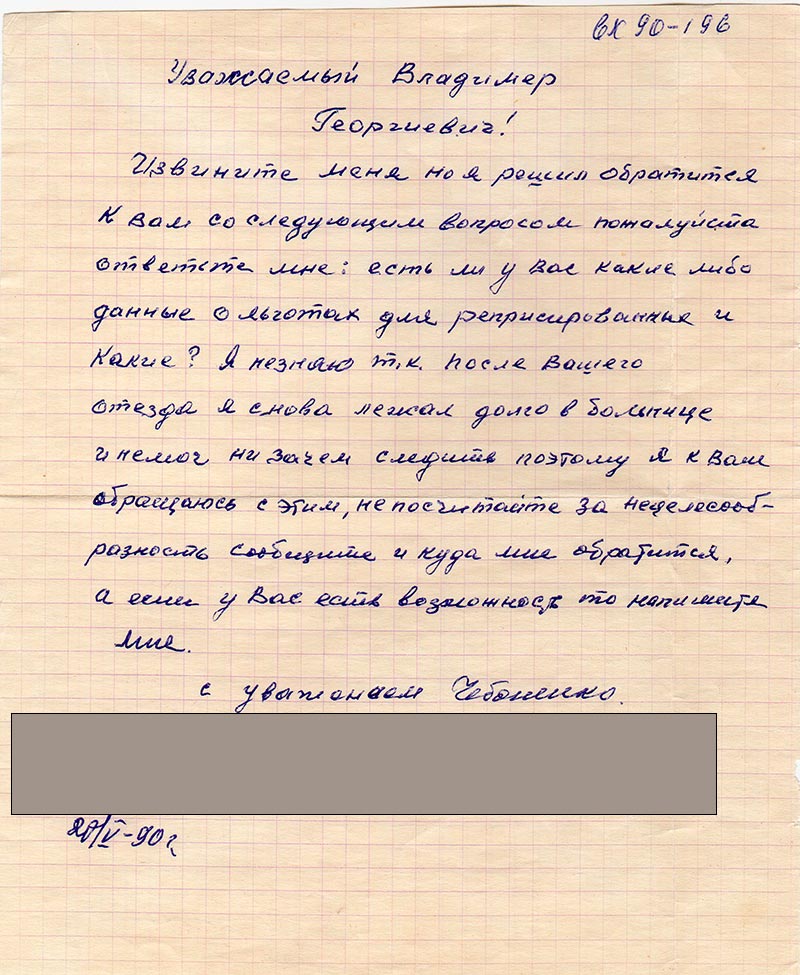 вх 90-196
Уважаемый Владимер
Георгиевич!
Извините меня но я решил обратится
к вам со следующим вопросом пожалуйста
ответте мне: есть ли у Вас какие либо
данные о льготах для реприсированных и
Какие? Я незнаю т.к. после Вашего
отезда я снова лежал долго в больнице
и немог ни зачем следить поэтому я к Вам
обращаюсь с этим, не посчитайте за нецелесооб-
разность сообщите и куда мне обратится,
а если у Вас есть возможность то напишите
мне.
с уважением Чебоненко.
/V-90 г,